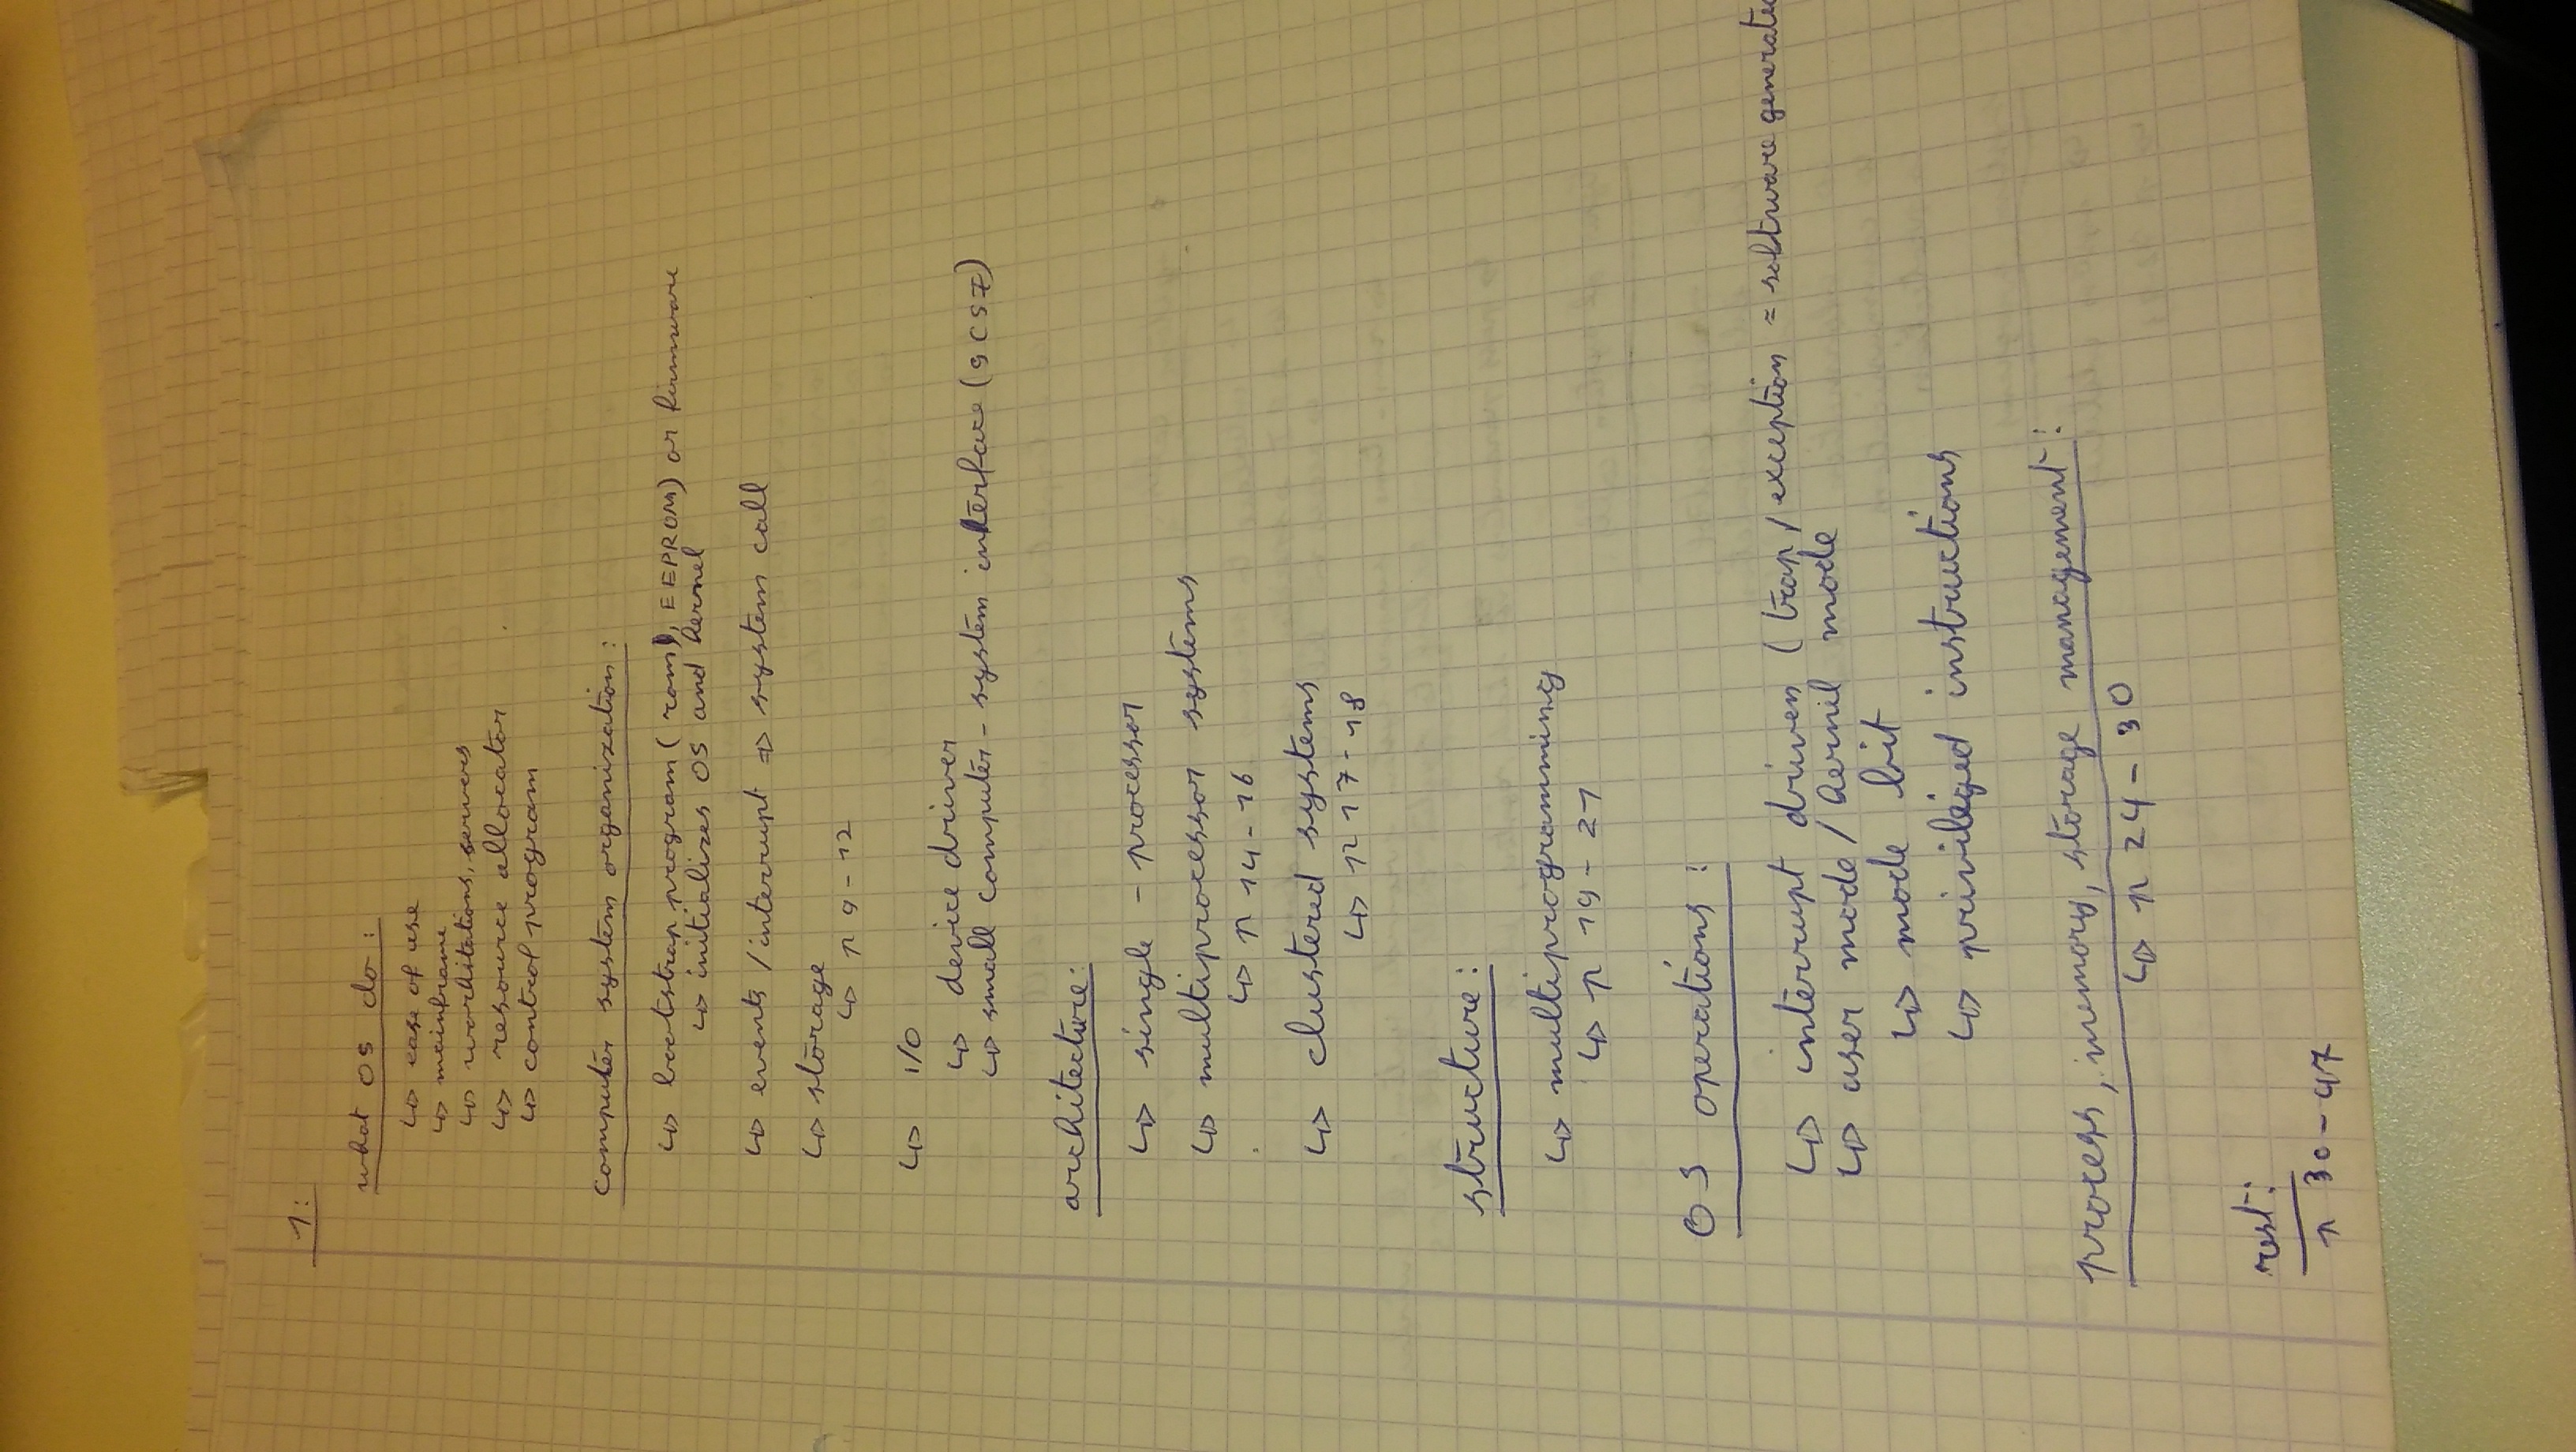 1:
what OS do:
↳ ease of use
↳ mainframe
↳ workstations, servers
↳ resource allocator
↳ control program
computer system organization:
↳ bootstrap program ( rom), EEPROM) or firmware
↳ initializes OS and kernel
↳ events / interrupt ⇒ system call
↳ storage
↳ p 9 - 12
↳ I/O
↳ device driver
↳ small computer - system interface (SCSI)
architecture:
↳ single - processor
↳ multiprocessor systems
↳ p 14 - 16
↳ clustered systems
↳ p 17 - 18
structure:
↳ multiprogramming
↳ p 19 - 21
OS operations:
↳ interrupt driven ( trap / exception = software generated
↳ user mode / kernel mode
↳ mode bit
↳ privileged instructions
process, memory, storage management:
↳ p 24 - 30
rest:
p 30 - 47